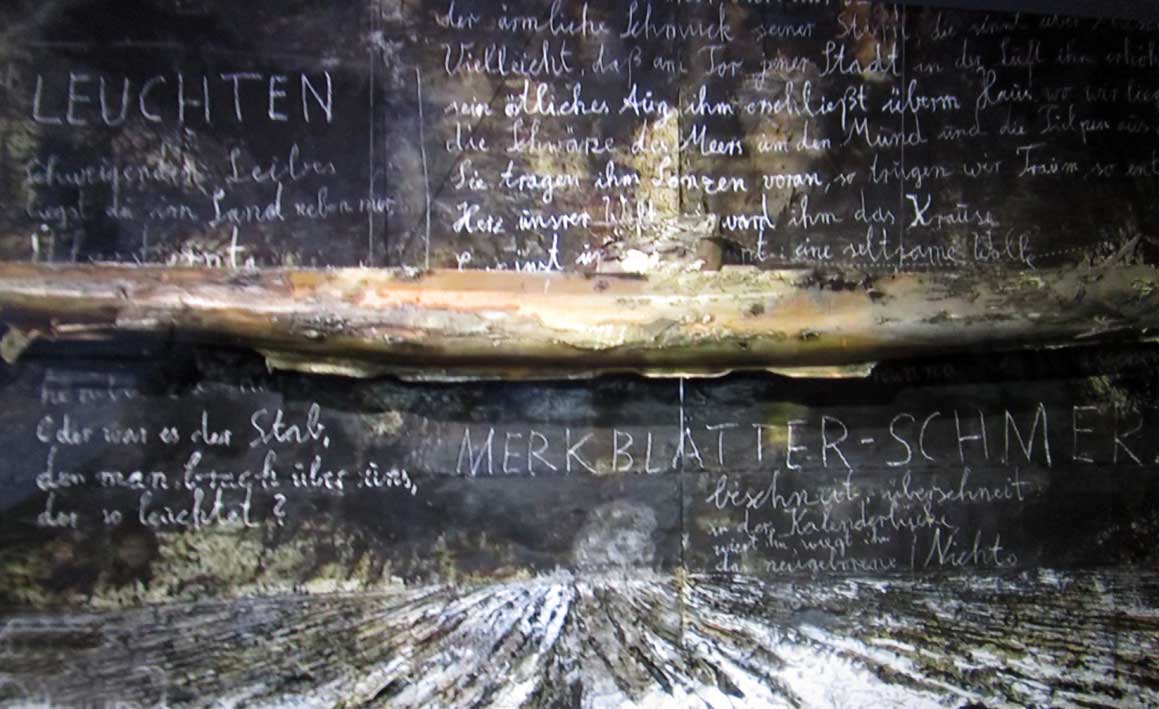 der ärmliche Schmuck seiner die sinnt über
Vielleicht, daß am Tor jener Stadt in der Luft ihn
LEUCHTEN
sein östliches Aug ihm erschließt überm Haus wo wir lieg
die Schwärze des Meers um den Mund und die Tulpen aus
Schweigenden Leibes
Sie tragen ihm Lanzen voran, so trugen wir Traum, so ent
liegst du im Sand neben mir,
Herz unsrer Welt ward ihm das Krause
eine seltsame Wolle
Oder war es der Stab,
den man brach über uns,
der so leuchtet?
MERKBLÄTTER-SCHMER
beschneit, überschneit
in der Kalenderlücke
wiegt ihn, wiegt ihn
das neugeborene / Nichts